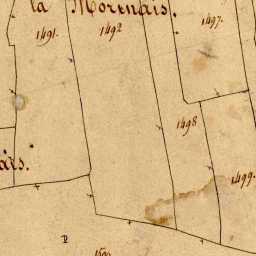 la Morinais.
1491.
1492
1497.
1498
1499.